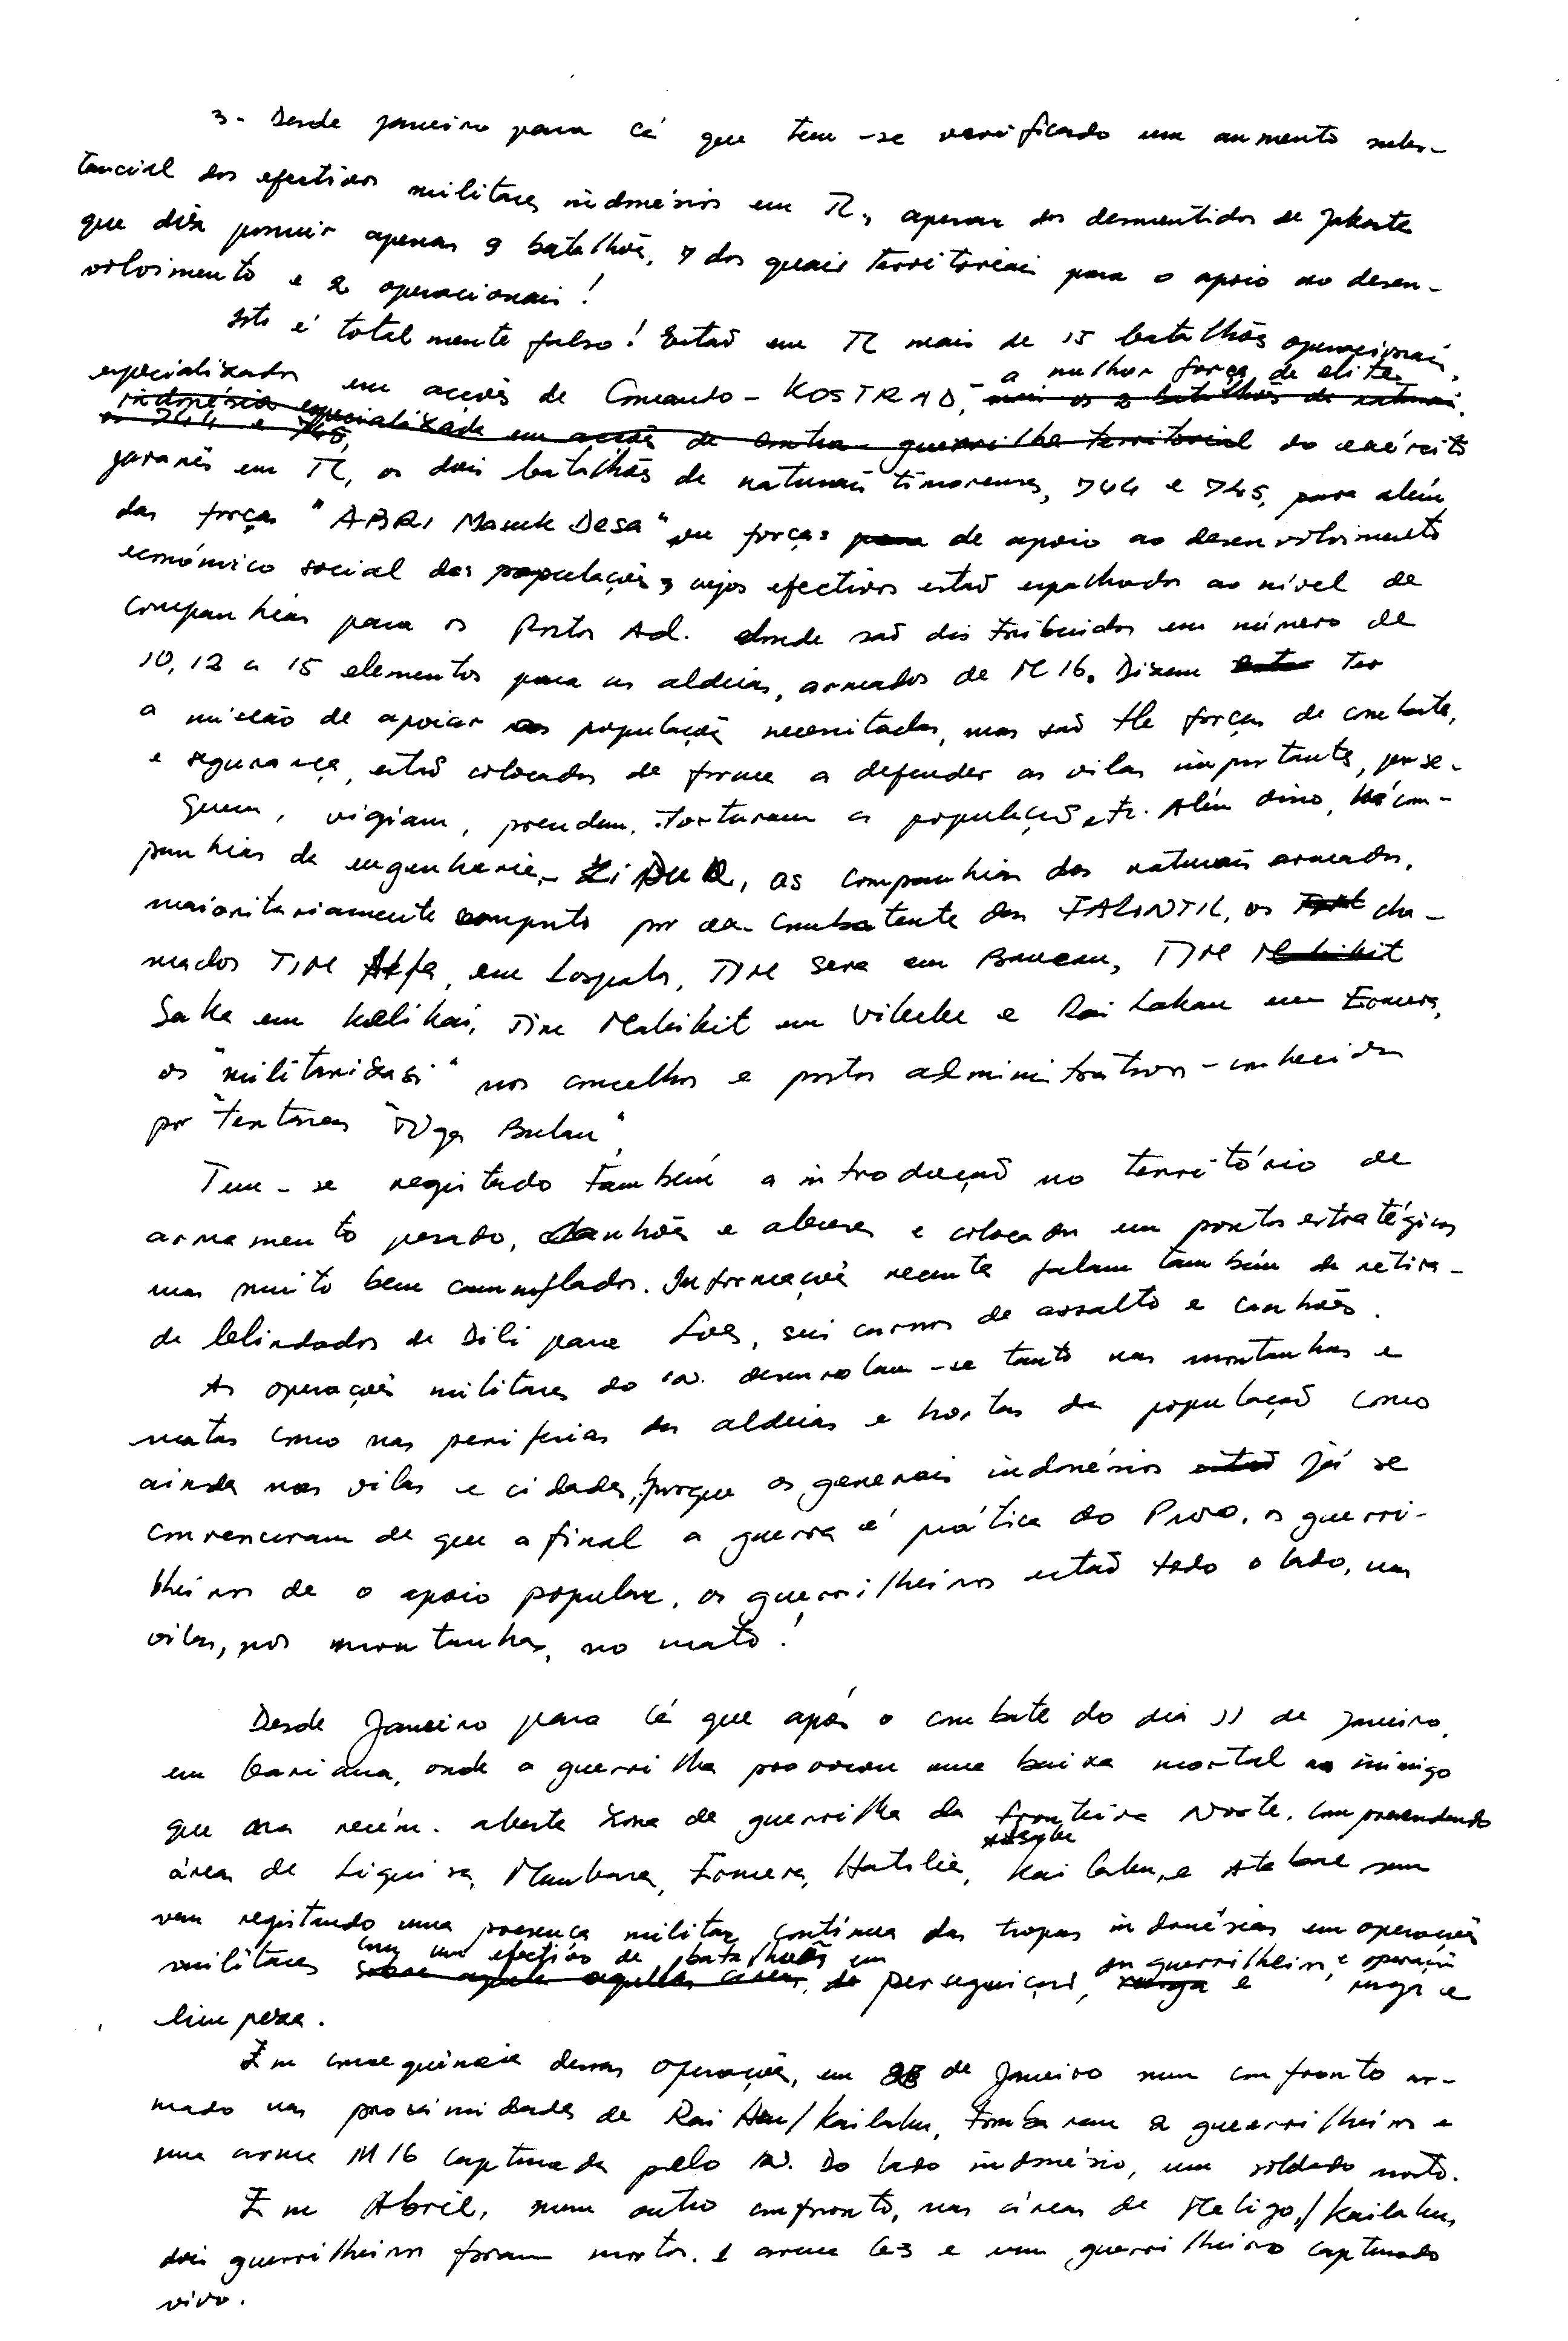 3- Desde janeiro para cá que tem-se verificado um aumento subs-
tancial dos efectivos militares indonésios em TL, apesar dos desmentidos de Jakarta
que diz possuir apenas 9 batalhões, 7 dos quais territoriais para o apoio ao desen-
volvimento e 2 operacionais!
Isto é totalmente falso! Estão em TL mais de 15 batalhões operacionais,
especializados em acções de Comando - KOSTRAD, - a melhor força de elite
do exército
javanês em TL, os dois batalhões de naturais timorenses, 744 e 745, para além
das forças "ABRI Masuk Desa" ou forças de apoio ao desenvolvimento
económico social das populações, cujos efectivos estão espalhados ao nível de
companhias para os Postos Ad. donde são distribuidos em número de
10, 12 a 15 elementos para as aldeias, armados de M16. Dizem ter
a missão de apoiar as populações necessitadas, mas são forças de combate,
e segurança, estão colocados de forma a defender as vilas importantes, perse-
guem, vigiam, prendem, torturam a população, etc. Além disso, há com-
panhias de engenharia - ZiDUR, as companhias dos naturais armados,
maioritariamente composto por ex-combatentes das FALINTIL, os cha-
mados TIM Alfa, em Lospalos, TIM Sera em Baucau, TIM
Saka em Kelikai, Tim Makikit em Vikeke e Rai Lakan em Ermera,
os "militarizasi" nos concelhos e postos administrativos - conhecidos
por "tentaras "Tiga Bulan".
Tem-se registado também a introdução no território de
armamento pesado, canhões e e colocados em pontos estratégicos
mas muito bem camuflados. Informações recentes falam também da retira-
da de blindados de Dili para Loes, seis carros de assalto e canhões.
As operações militares do in. desenrolam-se tanto nas montanhas e
matas como nas periferias das aldeias e hortas da população como
ainda nas vilas e cidades, porque os generais indonésios já se
convenceram de que afinal a guerra é prática do Povo, os guerri-
lheiros de o apoio popular, os guerrilheiros estão todo o lado, nas
vilas, nas montanhas, no mato!
Desde Janeiro para cá que após o combate do dia 11 de Janeiro,
em Gariana, onde a guerrilha provocou uma baixa mortal ao inimigo
que era recém-aberta zona de guerrilha da fronteira Norte, compreendendo
área de Liquiça, Maubara, Ermera, Hatolia, Kailaku, e Atabae
vem registando uma presença militar contínua das tropas indonésias em operações
militares com um efectivo de batalhões em perseguição, aos guerrilheiros, e operações rusga e
limpeza.
Em consequência dessas operações, em 28 de Janeiro num confronto ar-
mado nas proximidades de Rai /Kailaku, tombaram 2 guerrilheiros e
uma arma M16 capturada pelo in. Do lado indonésio, um soldado morto.
Em Abril, num outro confronto, nas áreas de Maligo,/Kailaku,
dois guerrilheiros foram mortos. 1 arma G3 e um guerrilheiro capturado
vivo.